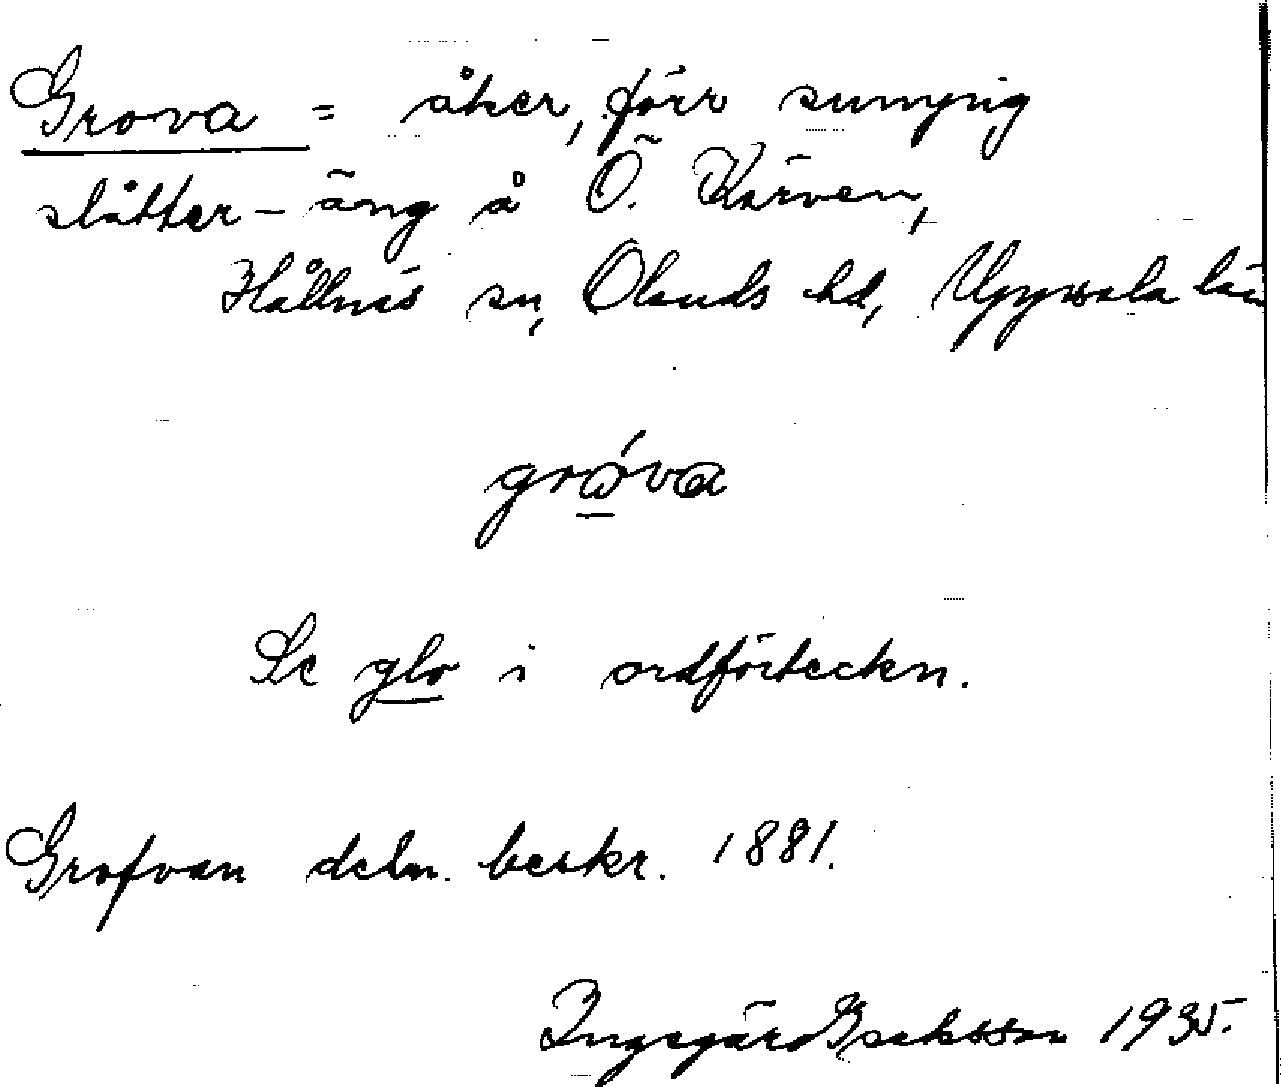 Grova = åker, förr sumpig
slåtter-äng å Ö. Kärven,
Hållnäs sn, Olands hd, Uppsala län
gròva
Se glo i ordförteckn.
Grofvan deln. beskr. 1881.
Ingegärd Isaksson 1935.